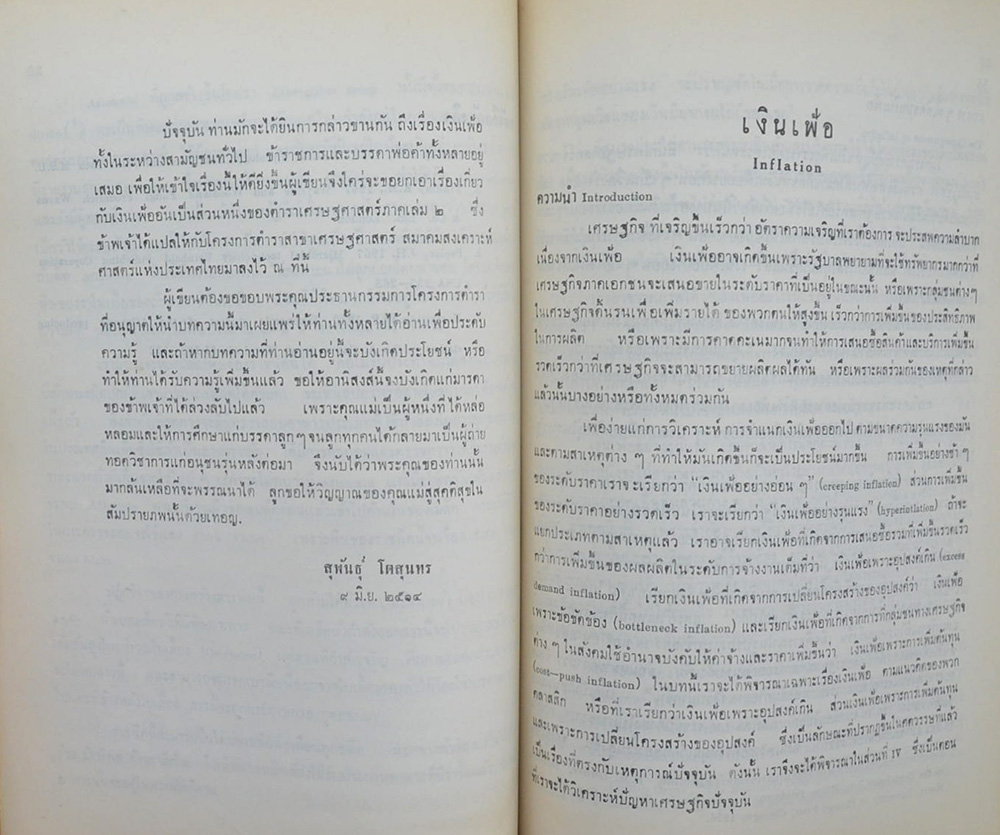 ปัจจุบัน ท่านมักจะได้ยินการกล่าวขานกัน ถึงเรื่องเงินเฟ้อ
ทั้งในระหว่างสามัญชนทั่วไป ข้าราชการและบรรดาพ่อค้าทั้งหลายอยู่
เสมอ เพื่อให้เข้าใจเรื่องนี้ให้ดียิ่งขึ้นผู้เขียนจึงใคร่จะขอยกเอาเรื่องเกี่ยว
กับเงินเฟ้ออันเป็นส่วนหนึ่งของตำราเศรษฐศาสตร์ภาคเล่ม ๒ ซึ่ง
ข้าพเจ้าได้แปลให้กับโครงการตำราสาขาเศรษฐศาสตร์ สมาคมสงเคราะห์
ศาสตร์แห่งประเทศไทยมาลงไว้ ณ ที่นี้
ผู้เขียนต้องขอขอบพระคุณประธานกรรมการโครงการตำรา
ที่อนุญาตให้นำบทความนี้มาเผยแพร่ให้ท่านทั้งหลายได้อ่านเพื่อประดับ
ความรู้ และถ้าหากบทความที่ท่านอ่านอยู่นี้จะบังเกิดประโยชน์ หรือ
ทำให้ท่านได้รับความรู้เพิ่มขึ้นแล้ว ขอให้อานิสงส์นี้จงบังเกิดแก่มารดา
ของข้าพเจ้าที่ได้ล่วงลับไปแล้ว เพราะคุณแม่เป็นผู้หนึ่งที่ได้หล่อ
หลอมและให้การศึกษาแก่บรรดาลูกๆ จนลูกทุกคนได้กลายมาเป็นผู้ถ่าย
ทอดวิชาการแก่อนุชนรุ่นหลังต่อมา จึงนับได้ว่าพระคุณของท่านนั้น
มากล้นเหลือที่จะพรรณนาได้ ลูกขอให้วิญญาณของคุณแม่สู่สุคติสุขใน
สัมปรายภพนั้นด้วยเทอญ.
สุพันธุ์ โตสุนทร
๙ มิ.ย. ๒๕๑๔
เงินเฟ้อ
Inflation
ความนำ Introduction
เศรษฐกิจ ที่เจริญขึ้นเร็วกว่า อัตราความเจริญที่เราต้องการ จะประสพความลำบาก
เนื่องจากเงินเฟ้อ เงินเฟ้ออาจเกิดขึ้นเพราะรัฐบาลพยายามที่จะใช้ทรัพยากรมากกว่าที่
เศรษฐกิจภาคเอกชนจะเสนอขายในระดับราคาที่เป็นอยู่ในขณะนั้น หรือเพราะกลุ่มชนต่างๆ
ในเศรษฐกิจดิ้นรนเพื่อเพิ่มรายได้ ของพวกตนให้สูงขึ้น เร็วกว่าการเพิ่มขึ้นของประสิทธิภาพ
ในการผลิต หรือเพราะมีการคาดคะเนมากจนทำให้การเสนอซื้อสินค้าและบริการเพิ่มขึ้น
รวดเร็วกว่าที่เศรษฐกิจจะสามารถขยายผลิตผลได้ทัน หรือเพราะผลร่วมกันของเหตุที่กล่าว
แล้วนั้นบางอย่างหรือทั้งหมดรวมกัน
เพื่อง่ายแก่การวิเคราะห์ การจำแนกเงินเฟ้อออกไป ตามขนาดความรุนแรงของมัน
และตามสาเหตุต่าง ๆ ที่ทำให้มันเกิดขึ้นก็จะเป็นประโยชน์มากขึ้น การเพิ่มขึ้นอย่างช้า ๆ
ของระดับราคาเราจะเรียกว่า “เงินเฟ้ออย่างอ่อน ๆ” (creeping inflation) ส่วนการเพิ่มขึ้น
ของระดับราคาอย่างรวดเร็ว เราจะเรียกว่า “เงินเฟ้ออย่างรุนแรง” (hyperinflation) ถ้าจะ
แยกประเภทตามสาเหตุแล้ว เราอาจเรียกเงินเฟ้อที่เกิดจากการเสนอซื้อรวมที่เพิ่มขึ้นรวดเร็ว
กว่าการเพิ่มขึ้นของผลผลิตในระดับการจ้างงานเต็มที่ว่า เงินเฟ้อเพราะอุปสงค์เกิน (excess
demand inflation) เรียกเงินเฟ้อที่เกิดจากการเปลี่ยนโครงสร้างของอุปสงค์ว่า เงินเฟ้อ
เพราะข้อขัดข้อง (bottleneck inflation) และเรียกเงินเฟ้อที่เกิดจากการที่กลุ่มชนทางเศรษฐกิจ
ต่าง ๆ ในสังคมใช้อำนาจบังคับให้ค่าจ้างและราคาเพิ่มขึ้นว่า เงินเฟ้อเพราะการเพิ่มต้นทุน
(cost-push inflation) ในบทนี้เราจะได้พิจารณาเฉพาะเรื่องเงินเฟ้อ ตามแนวคิดของพวก
คลาสสิก หรือที่เราเรียกว่าเงินเฟ้อเพราะอุปสงค์เกิน ส่วนเงินเฟ้อเพราะการเพิ่มต้นทุน
และเพราะการเปลี่ยนโครงสร้างของอุปสงค์ ซึ่งเป็นลักษณะที่ปรากฏขึ้นในศตวรรษที่แล้ว
เป็นเรื่องที่ตรงกับเหตุการณ์ปัจจุบัน ดังนั้น เราจึงจะได้พิจารณาในส่วนที่ IV ซึ่งเป็นตอน
ที่เราจะได้วิเคราะห์ปัญหาเศรษฐกิจปัจจุบัน